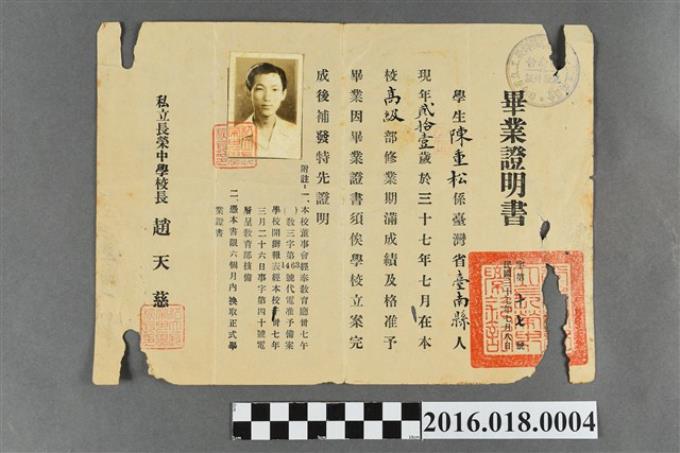 畢業證明書
學生陳重松係臺灣省臺南縣人
現年貳拾壹歲於三十七年七月在本
校高級部修業期滿成績及格准予
畢業因畢業證書須俟學校立案完
成後補發特先證明
附註:一、本校董事會經奉教育廳卅七午
教三字第1463號代電准予備案
學校開辦報表經本校卅七年
三月二十六日事字第四十號電
層呈教育部核備
二、憑本書限六個月內換取正式畢
業證書
私立長榮中學校長 趙天慈
字第十七號
民國三十七年七月八日
2016.018.0004